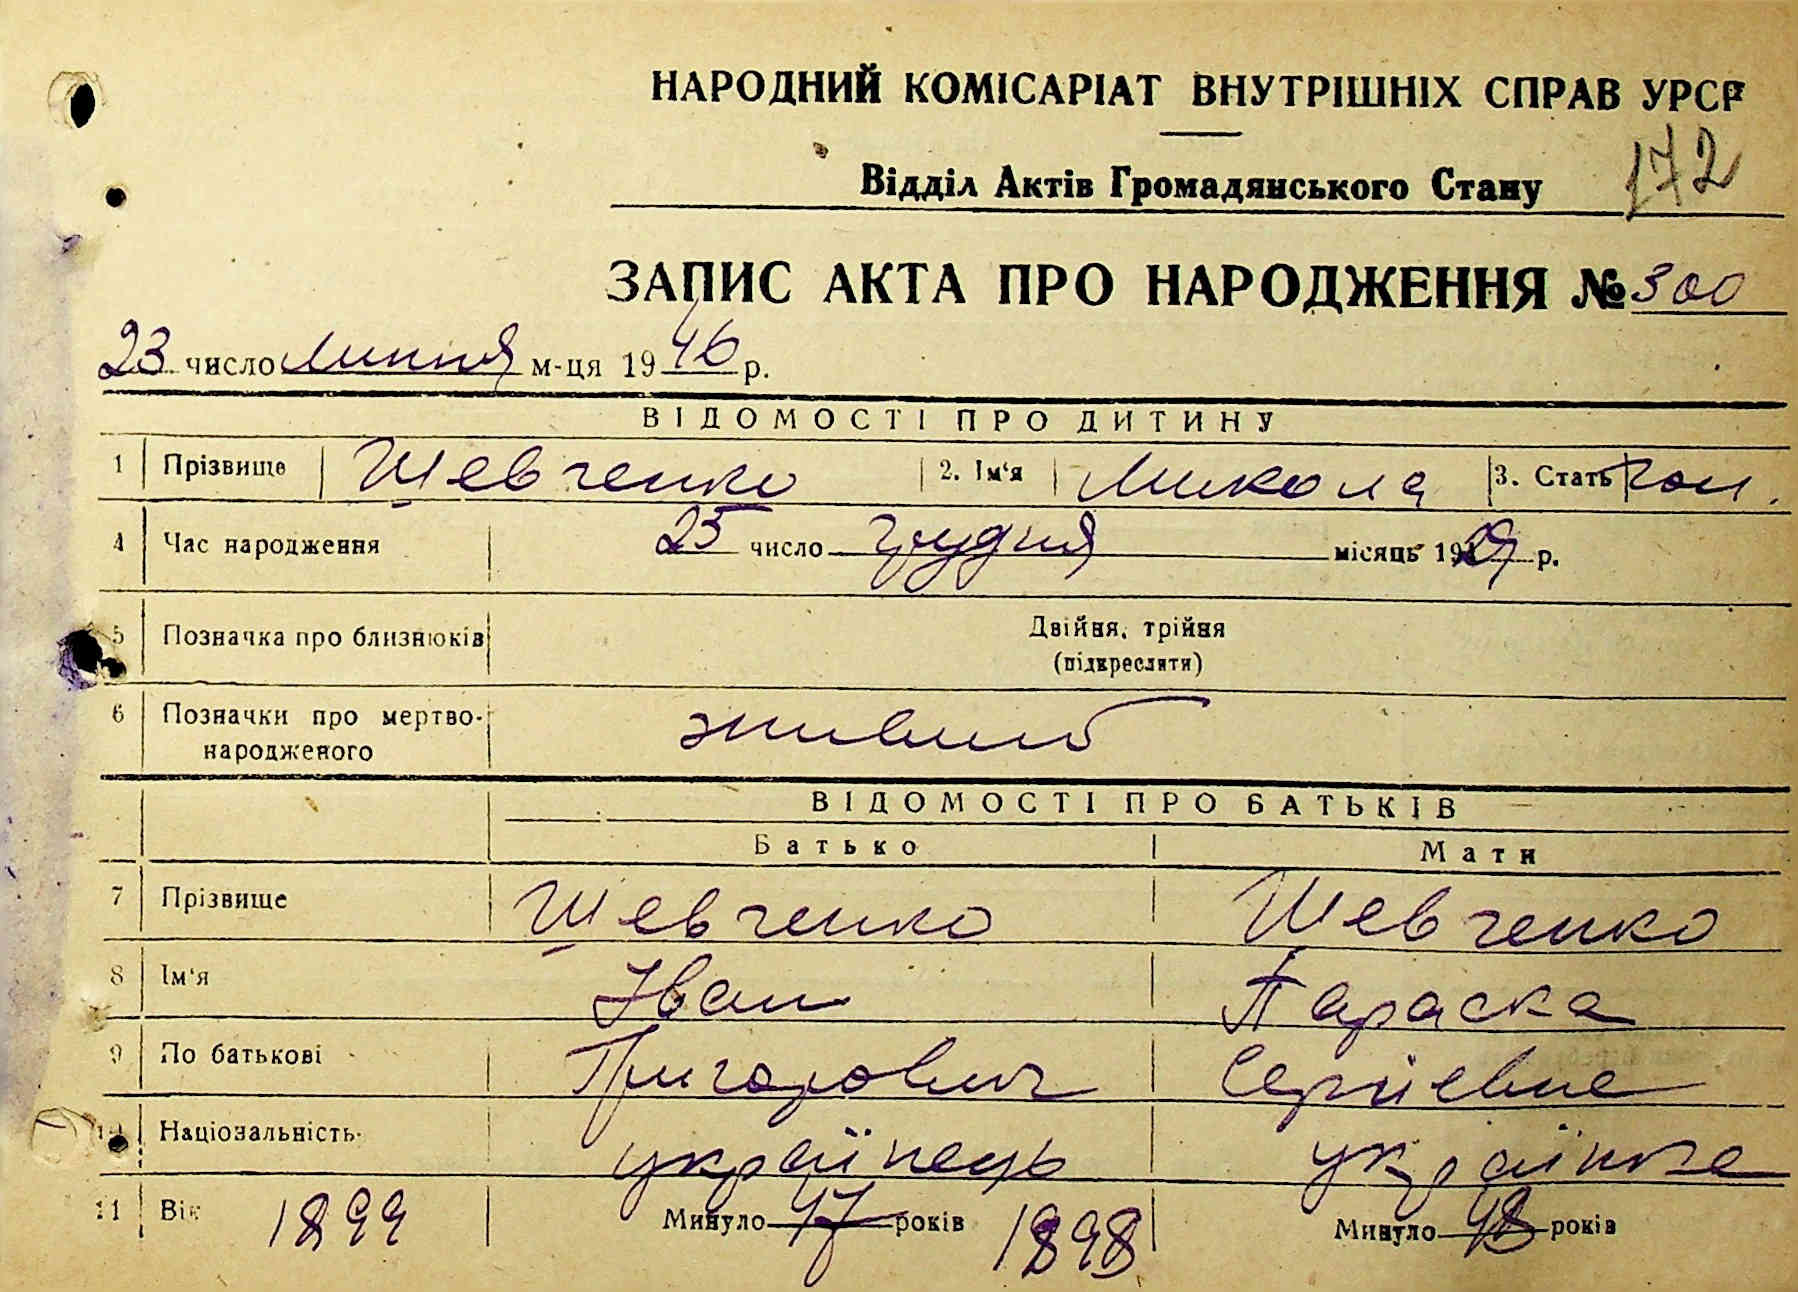 НАРОДНИЙ КОМІСАРІАТ ВНУТРІШНІХ СПРАВ УРСР
172
Відділ Актів Громадянського Стану
ЗАПИС АКТА ПРО НАРОДЖЕННЯ № 300
23 число липня м-ця 1946 р.
ВІДОМОСТІ ПРО ДИТИНУ
1 Прізвище Шевченко 2. Ім'я Микола 3. Стать чол.
4 Час народження 25 число грудня місяць 1929 р.
5 Позначка про близнюків Двійня, трійня
(підкреслити)
6 Позначки про мертво-
народженого живий
ВІДОМОСТІ ПРО БАТЬКІВ
Батько Мати
7 Прізвище Шевченко Шевченко
8 Ім'я Іван Параска
9 По батькові Григорович Сергіевна
10 Національність українець українка
11 Вік 1899 Минуло 47 років 1898 Минуло 48 років